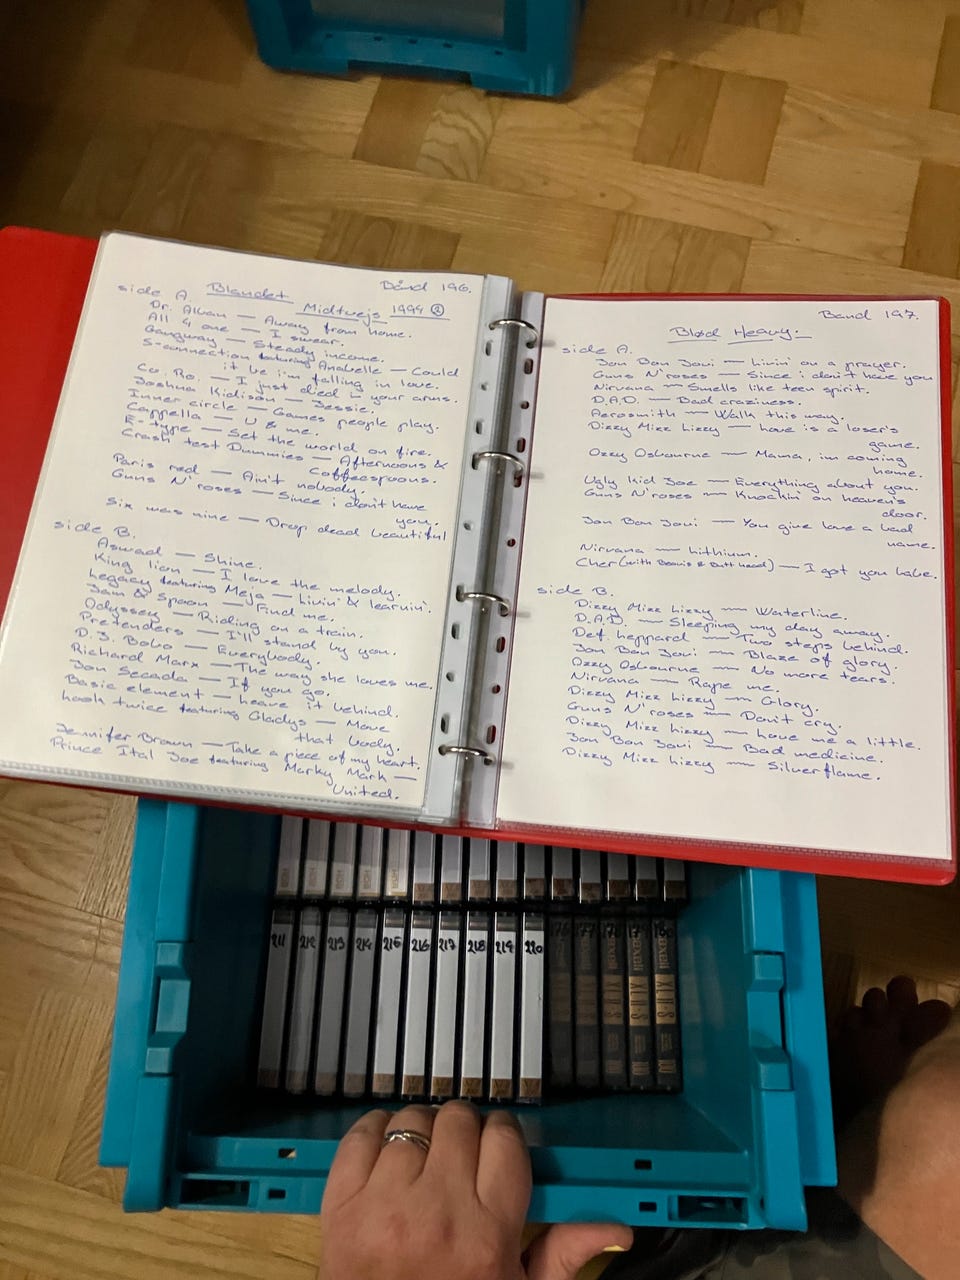 Bånd 196.
side A Blandet Midtvejs 1994 ②
Dr. Alban — Away from home.
All 4 one — I swear.
Gangway — Steady income.
S-connection featuring Anabelle — Could
it be i'm falling in love.
Co. Ro. — I just died in your arms.
Joshua Kidison — Jessie.
Inner circle — Games people play.
Cappella — U & me.
E-type — Set the world on fire.
Crash test Dummies — Afternoons &
Coffeespoons.
Paris red — Ain't nobody.
Guns N' roses — Since i don't have
you.
Six was nine — Drop dead beautiful
side B.
Aswad — Shine.
King lion — I love the melody.
Legacy featuring Meja — Livin' & learnin'.
Jam & Spoon — Find me.
Odyssey — Riding on a train.
Pretenders — I'll stand by you.
D.J. Bobo — Everybody.
Richard Marx — The way she loves me.
Jon Secada — If you go.
Basic element — Leave it behind.
Look twice featuring Gladys — Move
that body.
Jennifer Brown — Take a piece of my heart.
Prince Ital Joe featuring Marky Mark —
United.
Band 197.
Blød Heavy.
side A.
Jon Bon Jovi — Livin' on a prayer.
Guns N' roses — Since i don't have you
Nirvana — Smells like teen spirit.
D.A.D. — Bad craziness.
Aerosmith — Walk this way.
Dizzy Mizz Lizzy — Love is a loser's
game.
Ozzy Osbourne — Mama, im coming
home.
Ugly kid Joe — Everything about you.
Guns N' roses — Knockin' on heaven's
door.
Jon Bon Jovi — You give love a bad
name.
Nirvana — Lithium.
Cher (with Beavis & Butt head) — I got you babe.
side B.
Dizzy Mizz Lizzy — Waterline.
D.A.D. — Sleeping my day away.
Def Leppard — Two steps behind.
Jon Bon Jovi — Blaze of glory.
Ozzy Osbourne — No more tears.
Nirvana — Rape me.
Dizzy Mizz Lizzy — Glory.
Guns N' roses — Don't cry.
Dizzy Mizz Lizzy — Love me a little.
Jon Bon Jovi — Bad medicine.
Dizzy Mizz Lizzy — Silverflame.
211 212 213 214 215 216 217 218 219 220 176 177 178 179 180
maxell
XLII-S